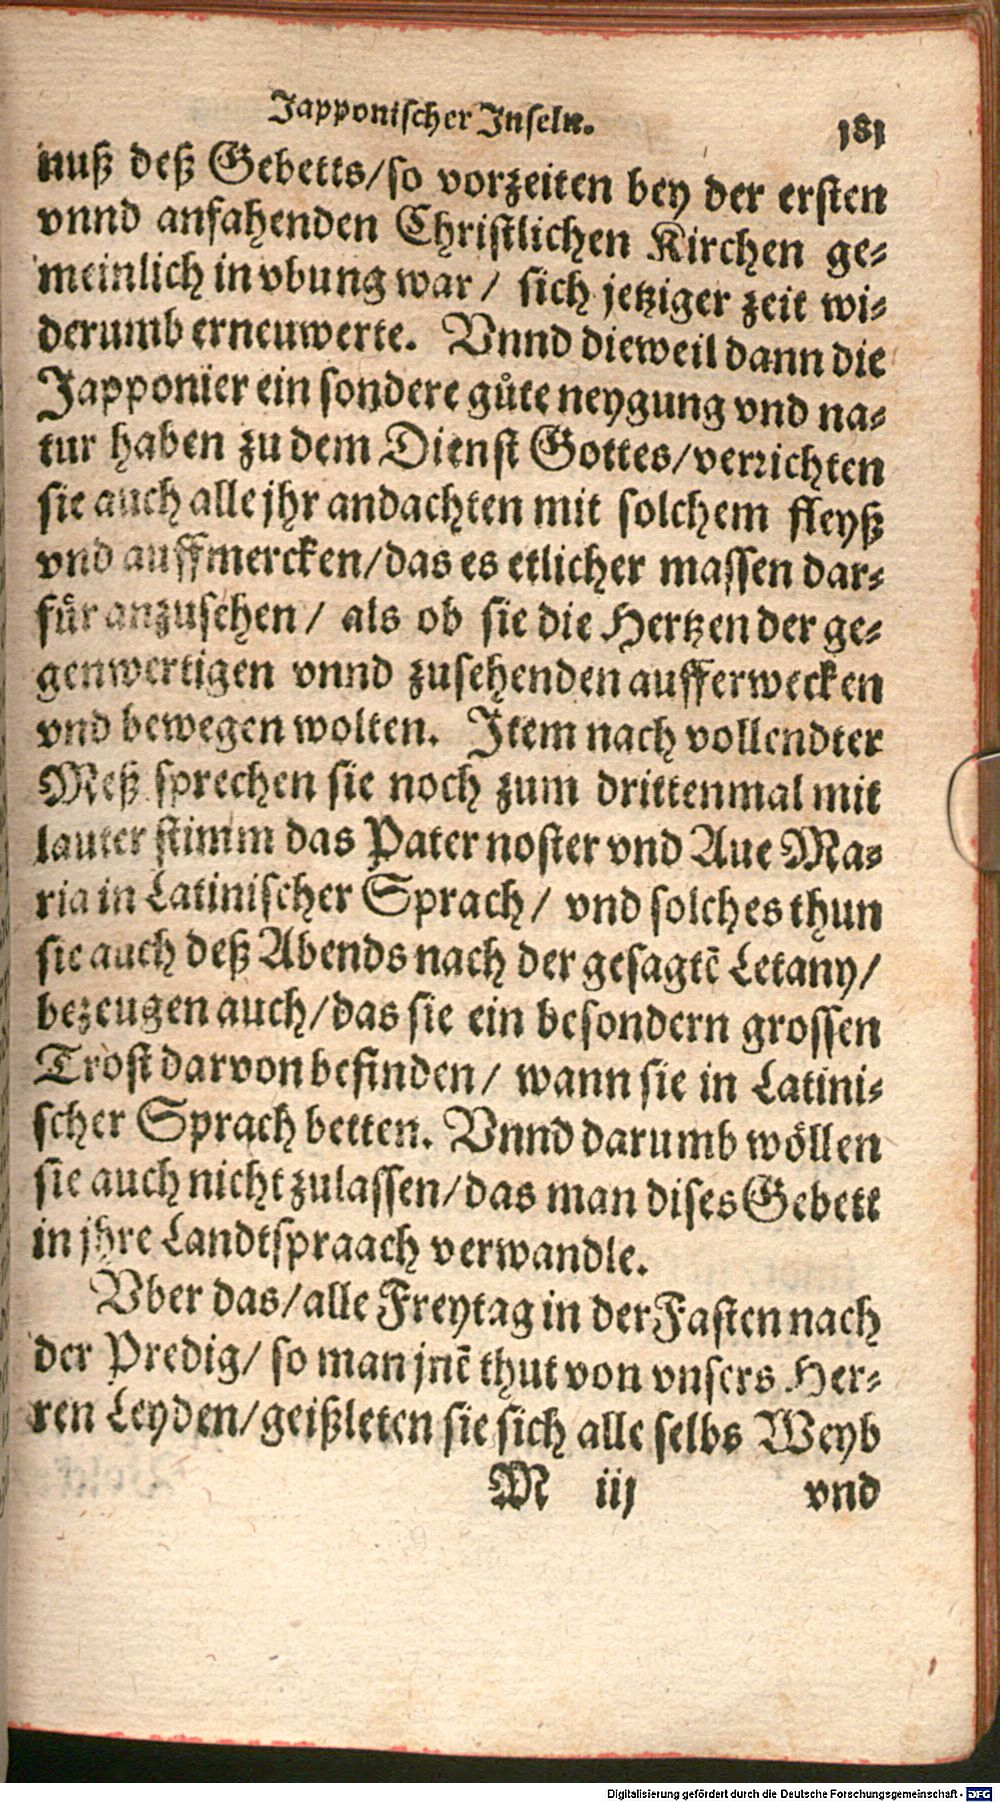 Japponischer Inseln. 181
nuß deß Gebetts/so vorzeiten bey der ersten
vnnd anfahenden Christlichen Kirchen ge-
meinlich in vbung war/ sich jetziger zeit wi-
derumb erneuwerte. Vnnd dieweil dann die
Japponier ein sondere guͤte neygung vnd na-
tur haben zu dem Dienst Gottes/verrichten
sie auch alle jhr andachten mit solchem fleyß
vnd auffmercken/das es etlicher massen dar-
fuͤr anzusehen/ als ob sie die Hertzen der ge-
genwertigen vnnd zusehenden aufferwecken
vnd bewegen wolten. Item nach vollendter
Meß sprechen sie noch zum drittenmal mit
lauter stimm das Pater noster vnd Aue Ma-
ria in Latinischer Sprach/ vnd solches thun
sie auch deß Abends nach der gesagtē Letany/
bezeugen auch/das sie ein besondern grossen
Trost darvon befinden/ wann sie in Latini-
scher Sprach betten. Vnnd darumb woͤllen
sie auch nicht zulassen/das man dises Gebett
in jhre Landtspraach verwandle.
Vber das/alle Freytag in der Fasten nach
der Predig/ so man jnē thut von vnsers Her-
ren Leyden/geißleten sie sich alle selbs Weyb
M iij vnd
Digitalisierung gefördert durch die Deutsche Forschungsgemeinschaft - DFG